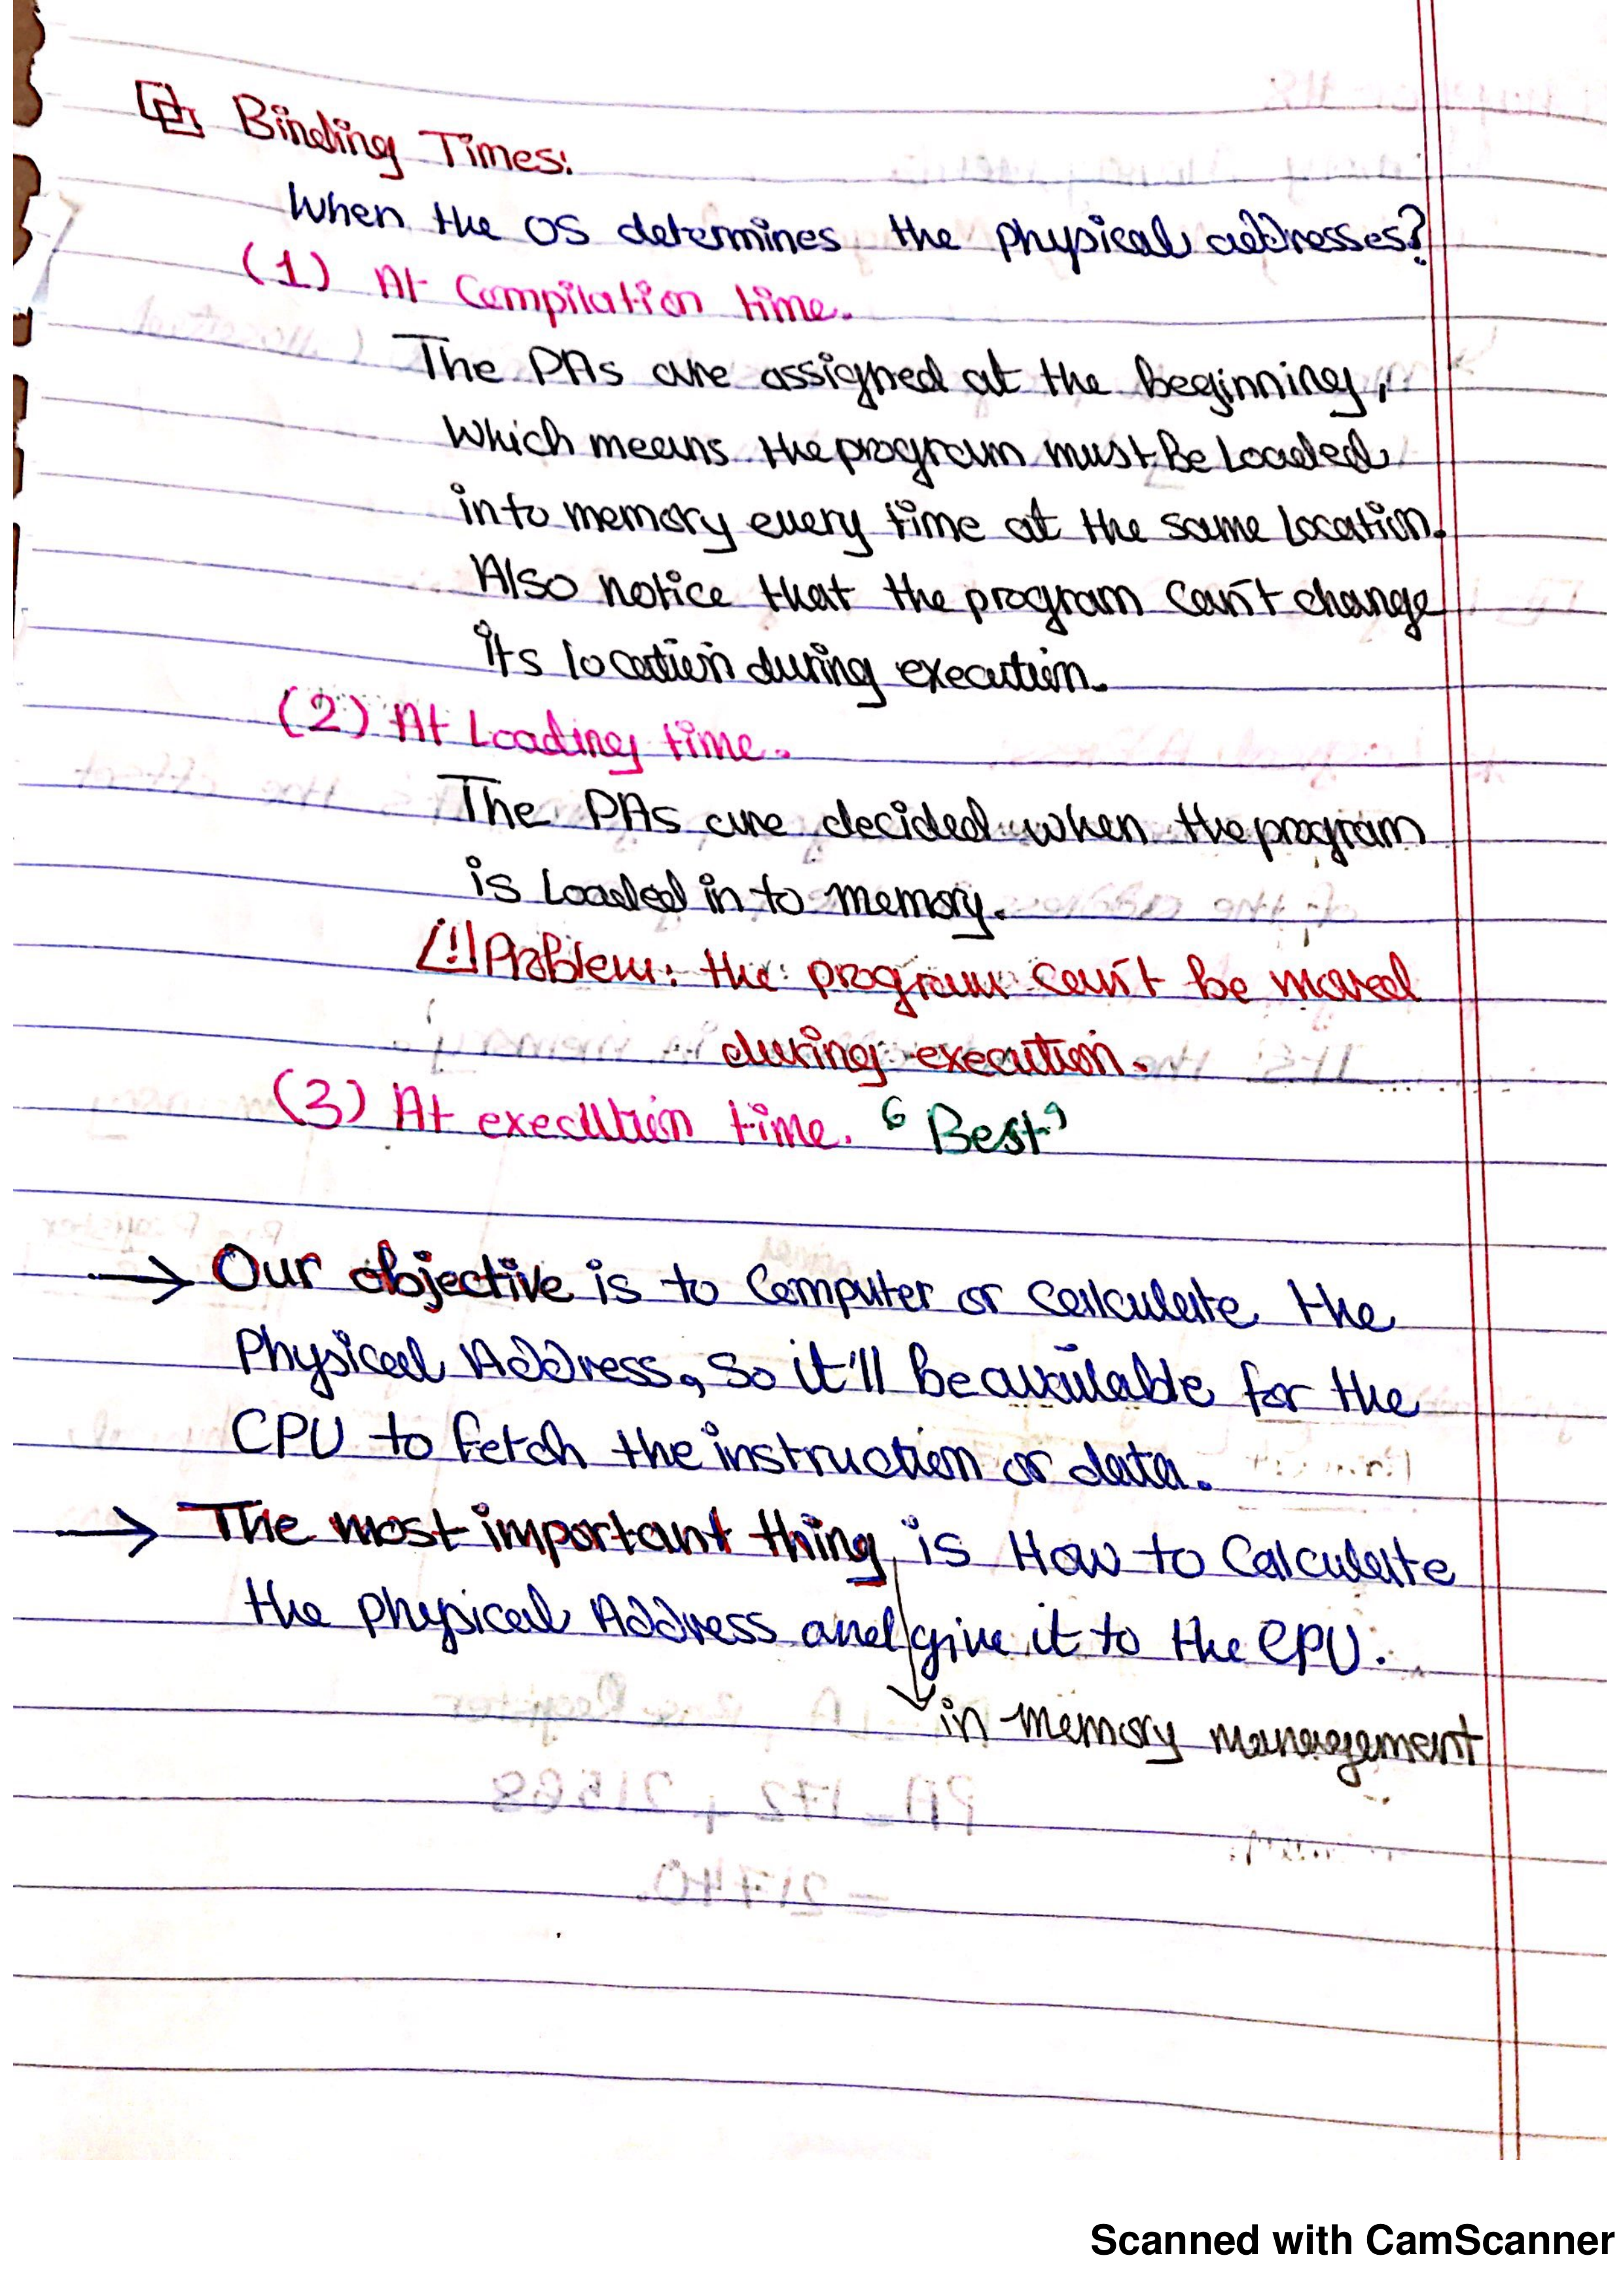 Binding Times:
When the OS determines the physical addresses?
(1) At Compilation time.
The PAs are assigned at the beginning,
which means the program must Be Loaded
into memory every time at the same location.
Also notice that the program can't change
its location during execution.
(2) At Loading time.
The PAs are decided when the program
is Loaded in to memory.
Problem: the program can't be moved
during execution.
(3) At execution time. "Best"
→ Our objective is to Computer or calculate the
Physical Address, so it'll be available for the
CPU to fetch the instruction or data.
→ The most important thing is How to Calculate
the physical Address and give it to the CPU.
in memory management
PA = 172 + 21568
= 21740.
Scanned with CamScanner